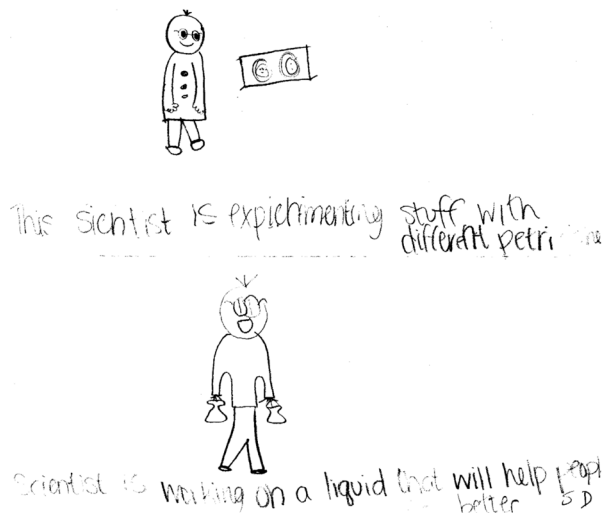 This sichtist is expichimenting stuff with
different petri
Scientist is working on a liquid that will help people
better